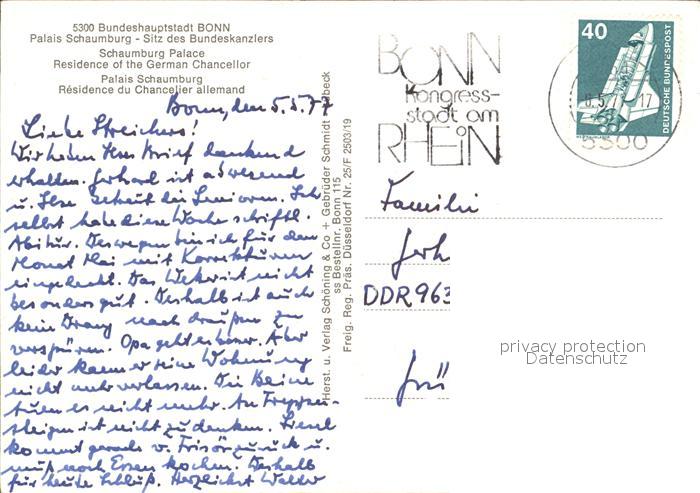 5300 Bundeshauptstadt BONN
Palais Schaumburg - Sitz des Bundeskanzlers
Schaumburg Palace
Residence of the German Chancellor
Palais Schaumburg
Résidence du Chancelier allemand
Bonn, den 5.5.77
Liebe Streichers!
Wir haben Ihren Brief dankend
erhalten. Gerhard ist abwesend
u. Ilse betreut die Senioren. Ich
selbst habe diese Woche schriftl.
Abitur. Deswegen bin ich für den
Monat Mai mit Korrekturen
eingedeckt. Das Wetter ist nicht
besonders gut. Deshalb ist auch
kein Drang nach draußen zu
verspüren. Opa geht es besser. Aber
leider kann er seine Wohnung
nicht mehr verlassen. Die Beine
tuen es nicht mehr. An Treppen-
steigen ist nicht zu denken. Liesel
kommt gerade v. Frisör zurück u.
muß noch Essen kochen. Deshalb
für heute Schluß. Herzlichst Walter
Herst. u. Verlag Schöning & Co + Gebrüder Schmidt
beck
ss Bestellnr. Bonn 115
Freig. Reg. Präs. Düsseldorf Nr. 25/F 2503/19
BONN
Kongress-
stadt am
RHEIN
40
DEUTSCHE BUNDESPOST
6.5.7
17
5300
Familie
Gerh
DDR 963
Grü
privacy protection
Datenschutz